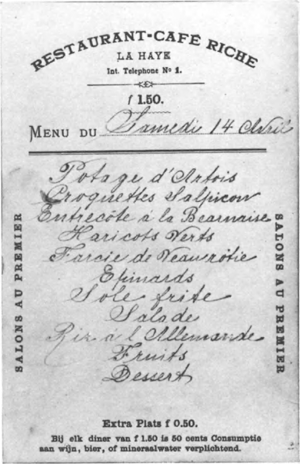 RESTAURANT-CAFÉ RICHE
LA HAYE
Int. Telephone No 1.
f 1.50.
MENU DU Samedi 14 Avril
SALONS AU PREMIER
Potage d'Artois
Croquettes Salpicon
Entrecôte à la Bearnaise
Haricots Verts
Farcie de Veau rôtie
Epinards
Sole frite
Salade
Riz à l'Allemande
Fruits
Dessert
SALONS AU PREMIER
Extra Plats f 0.50.
Bij elk diner van f 1.50 is 50 cents Consumptie
aan wijn, bier, of mineraalwater verplichtend.